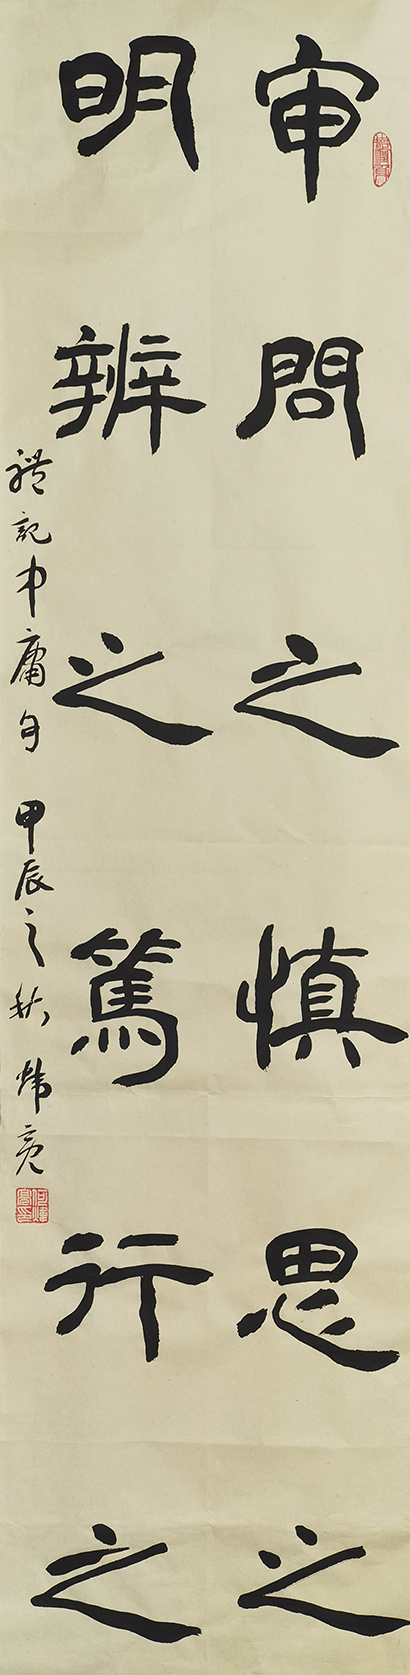 审問之慎思之
明辨之篤行之
禮記中庸句 甲辰之秋 炜亮